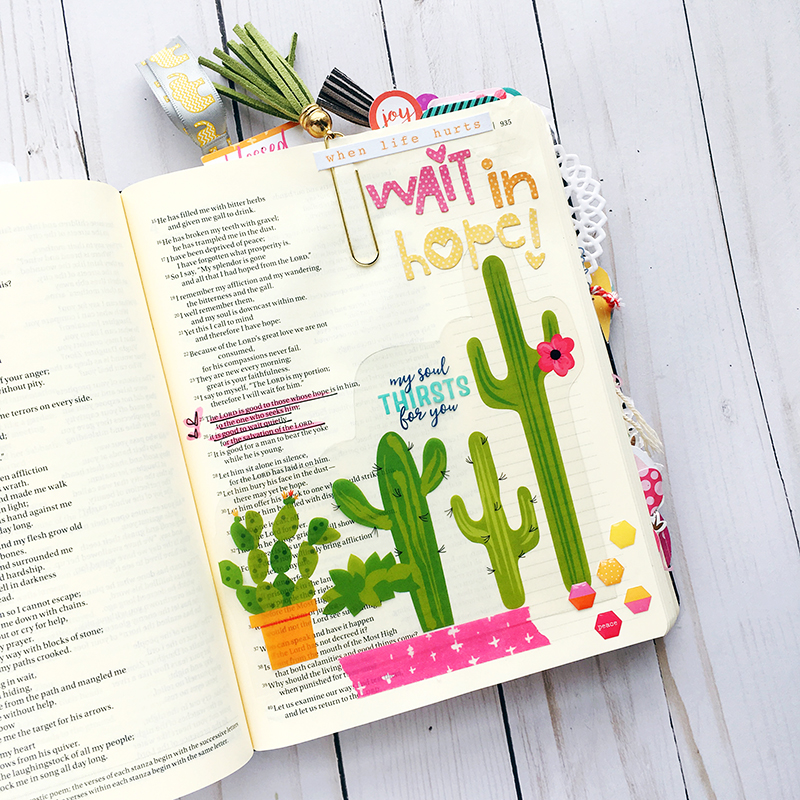 joy
blessed
when life hurts
935
WAIT in
hope!
my soul
THIRSTS
for you
15 He has filled me with bitter herbs
and given me gall to drink.
16 He has broken my teeth with gravel;
he has trampled me in the dust.
17 I have been deprived of peace;
I have forgotten what prosperity is.
18 So I say, "My splendor is gone
and all that I had hoped from the LORD."
19 I remember my affliction and my wandering,
the bitterness and the gall.
20 I well remember them,
and my soul is downcast within me.
21 Yet this I call to mind
and therefore I have hope:
22 Because of the LORD's great love we are not
consumed,
for his compassions never fail.
23 They are new every morning;
great is your faithfulness.
24 I say to myself, "The LORD is my portion;
therefore I will wait for him."
25 The LORD is good to those whose hope is in him,
to the one who seeks him;
26 it is good to wait quietly
for the salvation of the LORD.
27 It is good for a man to bear the yoke
while he is young.
28 Let him sit alone in silence,
for the LORD has laid it on him.
29 Let him bury his face in the dust—
there may yet be hope.
30 Let him offer his to one who would strike
him with disgr
he brings grief, show
bring affliction
to the
the Most High
would not the Lord see
speak and have it happen
decreed it?
mouth of the Most High
that both calamities and good things come?
39 Why should the living
when punished for
40 Let us examine our way
and let us return to the LORD
peace
his?
of your anger;
without pity.
me terrors on every side.
en affliction
s wrath.
and made me walk
n light;
his hand against me
day long.
nd my flesh grow old
bones.
and surrounded me
d hardship.
ell in darkness
ead.
n so I cannot escape;
me down with chains.
out or cry for help,
y prayer.
way with blocks of stone;
my paths crooked.
ng in wait,
hiding,
me from the path and mangled me
e without help.
bow
me the target for his arrows.
my heart
ows from his quiver.
he laughingstock of all my people;
ock me in song all day long.
stic poem; the verses of each stanza begin with the successive letters
within each stanza begin with the same letter.